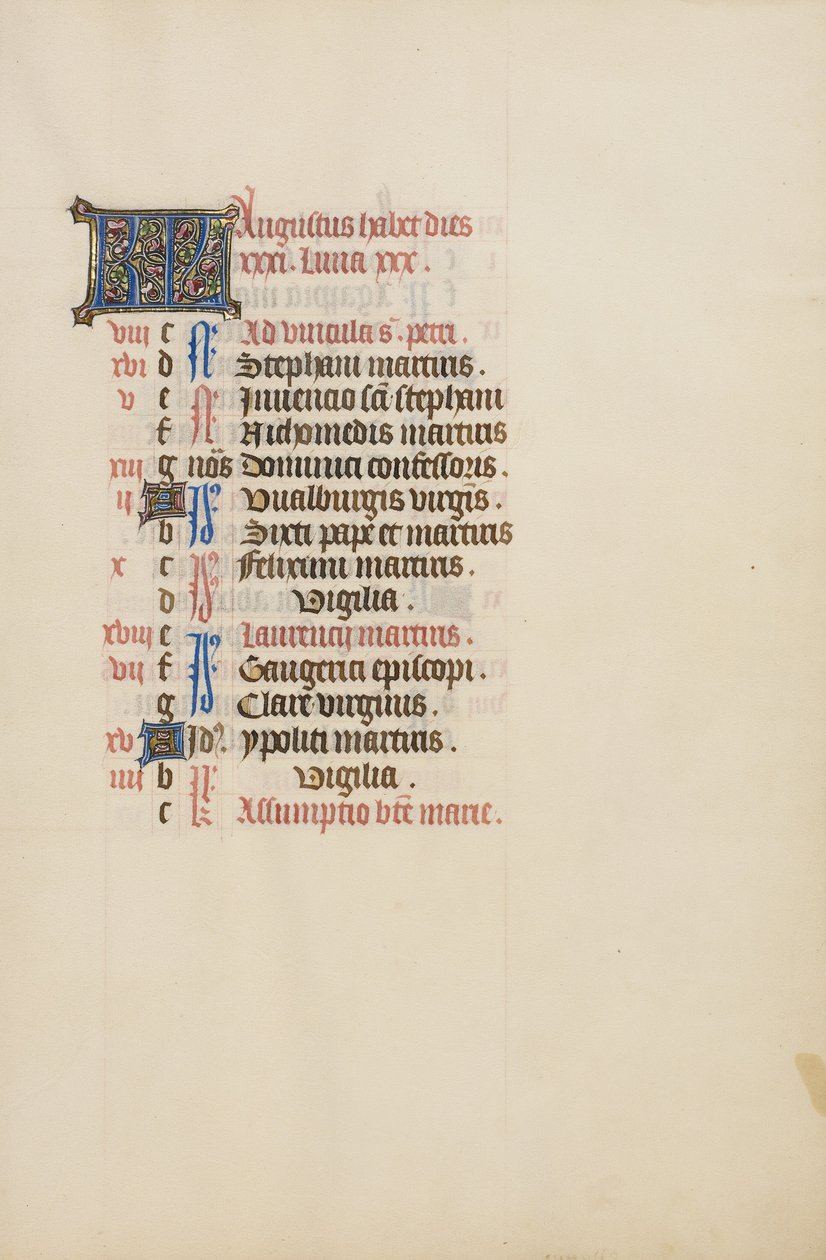 KL Augustus habet dies
xxxi. Luna xxx.
viii c N: Ad vincula s. petri.
xvi d Stephani martiris.
v e N: Inuencio sc̄i stephani
f Nichomedis martiris
xiii g nōs Dominici confessoris.
ii A Id9 Vualburgis virgīs.
b Sixti pape et martiris
x c Id9 Felixcimi martiris.
d Vigilia.
xviii e Id9 Laurencij martiris.
vii f Gaugerici episcopi.
g Clare virginis.
xv A Id9. ypoliti martiris.
iiii b N: Vigilia.
c k Assumptio bt̄e marie.